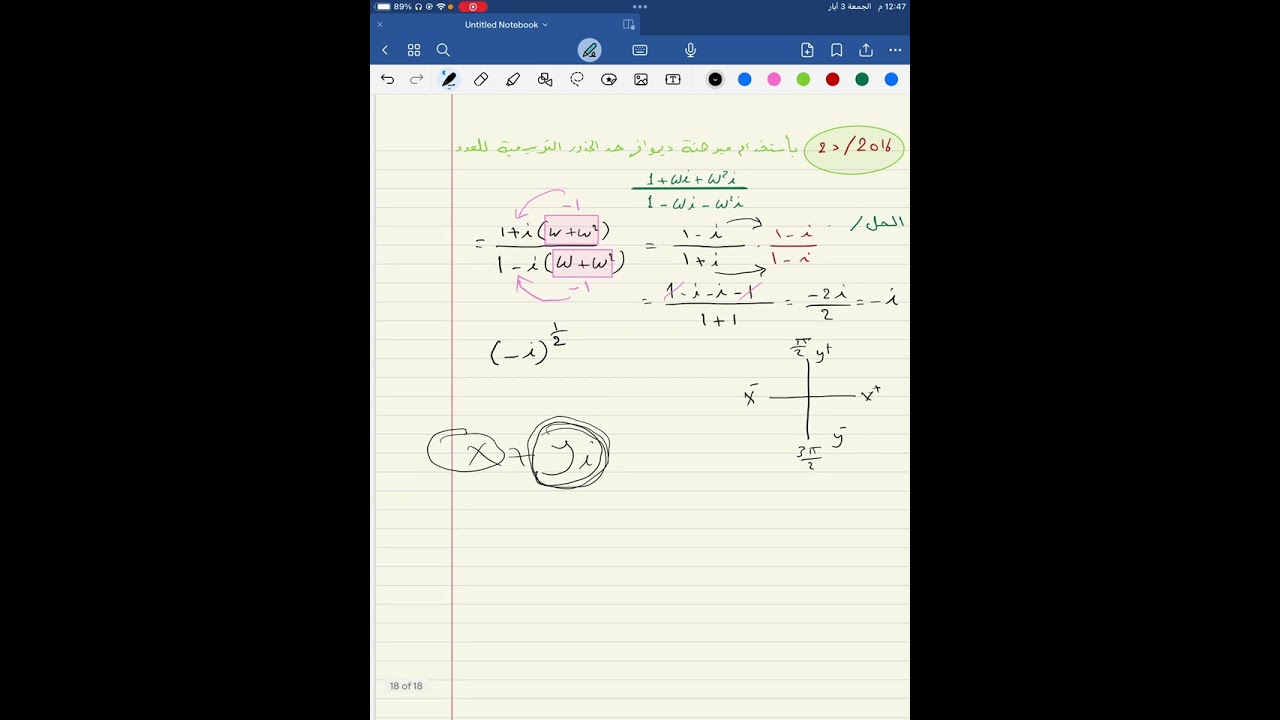 89%
12:47 م الجمعة 3 أيار
Untitled Notebook
2016/د2 بأستخدام مبرهنة ديموافر جد الجذور التربيعية للعدد
(1 + ωi + ω²i) / (1 - ωi - ω²i)
الحل/
= (1 + i(ω + ω²)) / (1 - i(ω + ω²)) = (1 - i) / (1 + i) · (1 - i) / (1 - i)
-1
-1
= (1 - i - i - 1) / (1 + 1) = -2i / 2 = -i
(-i)^(1/2)
π/2 y⁺
x⁻ x⁺
y⁻
3π/2
x + yi
18 of 18